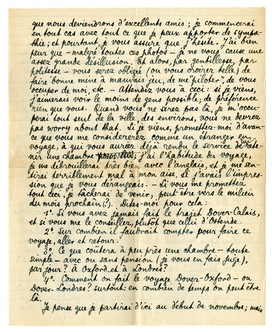 que nous deviendrons d'excellents amis ; je commencerai
en tout cas avec tout ce que je peux apporter de sympa-
thie ; et pourtant, je vous assure que j'hésite. J'ai bien
peur que - malgré toutes ces photos - je ne vous cause une
assez grande désillusion. Et alors, par gentillesse, par
politesse - vous serez obligé (ou vous croirez telle), de
faire bonne mine à mauvais jeu, de me piloter, de vous
occuper de moi, etc. - Attendez vous à ceci : si je viens,
j'aimerais voir le moins de gens possible ; de préférence
rien que vous. Quand vous ne serez pas là, je m'occu-
perai tout seul de la ville, des environs, vous ne devez
pas worry about that. Si je viens, promettez-moi d'avan-
ce que vous me considérerez comme un étranger en
voyage, à qui vous auriez déjà rendu le service de rete-
nir une chambre ; j'ai l'habitude du voyage,
je me débrouillerai très bien avec l'anglais, et je me sen-
tirai terriblement mal à mon aise, si j'avais l'impres-
sion que je vous dérangeais. - Si vous me promettez
tout cela, je tâcherai de venir, peut-être vers le milieu
du mois prochain (?). Dites-moi pour cela :
1°. Si vous avez jamais fait le trajet Dover-Calais,
et si vous me le conseillez plutôt que celui d'Ostende.
2°. Sur combien il faudrait compter pour faire ce
voyage, aller et retour.
3°. Ce que coûtera à peu près une chambre - toute
simple - avec ou sans pension (je vous en fais juge),
par jour ? à Oxford et à Londres ?
4°. Comment on fait le voyage Dover-Oxford - ou
Dover-Londres ? surtout : en combien de temps on peut être
là.
Je pense que je partirai d'ici au début de novembre ; mais